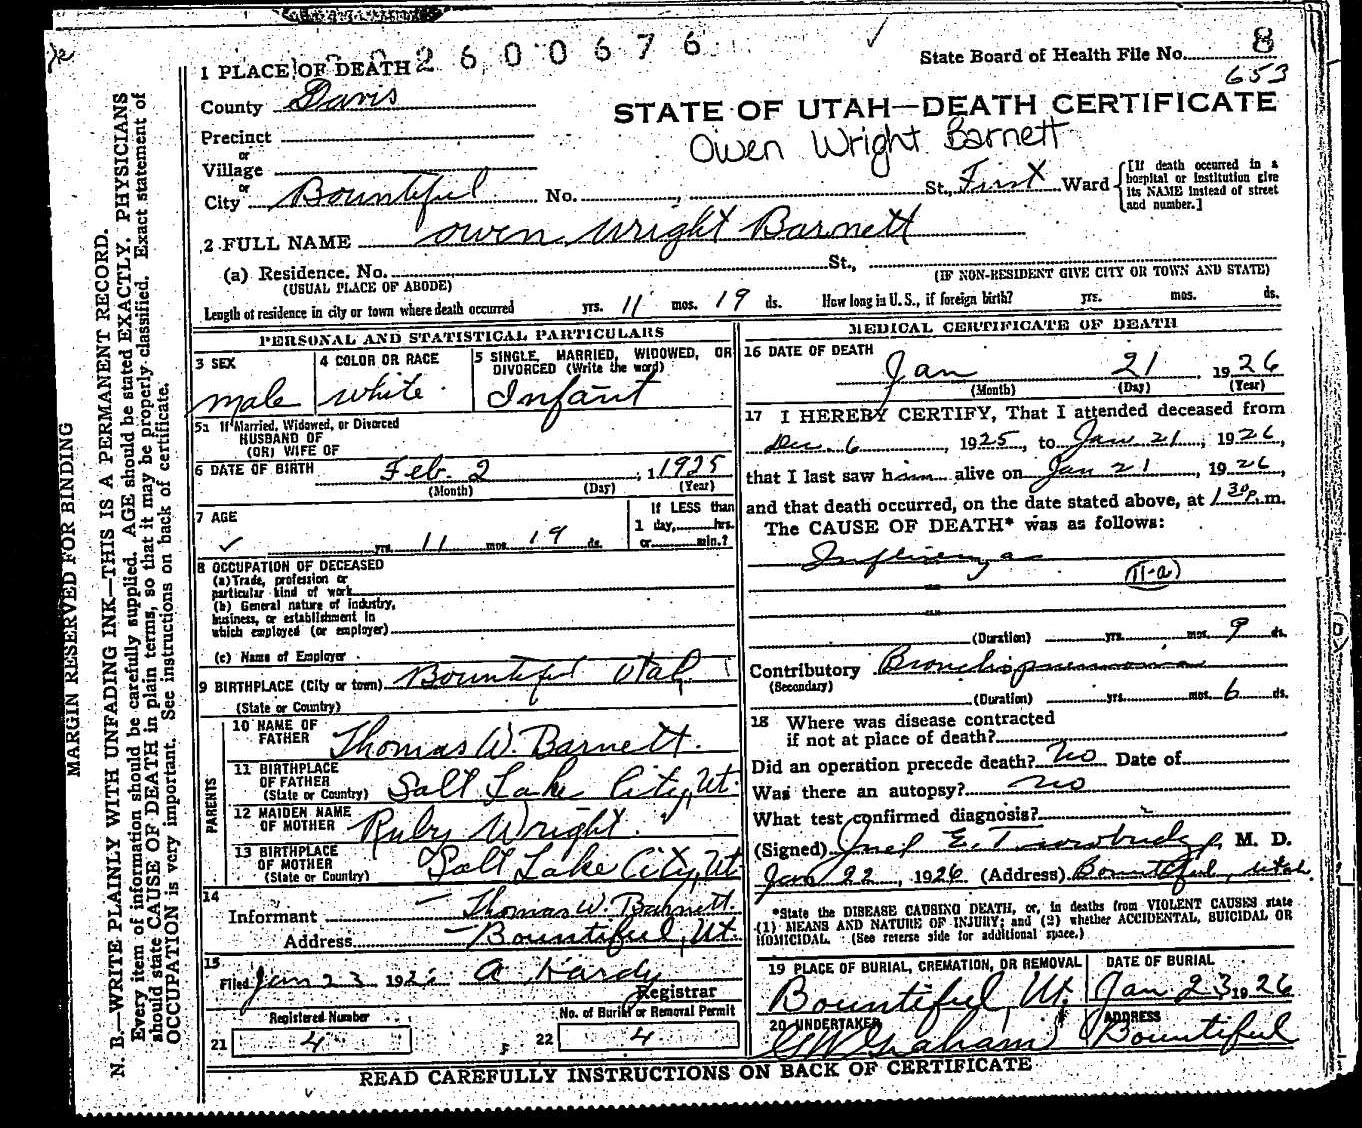 2600676
State Board of Health File No. 8
653
1 PLACE OF DEATH
County Davis
STATE OF UTAH—DEATH CERTIFICATE
Owen Wright Barnett
Precinct
or
Village
or
City Bountiful No. St., First Ward
[If death occurred in a
hospital or institution give
its NAME instead of street
and number.]
2 FULL NAME Owen Wright Barnett
(a) Residence. No. St.,
(USUAL PLACE OF ABODE) (IF NON-RESIDENT GIVE CITY OR TOWN AND STATE)
Length of residence in city or town where death occurred yrs. 11 mos. 19 ds. How long in U.S., if foreign birth? yrs. mos. ds.
PERSONAL AND STATISTICAL PARTICULARS
3 SEX
male
4 COLOR OR RACE
white
5 SINGLE, MARRIED, WIDOWED, OR
DIVORCED (Write the word)
Infant
5a If Married, Widowed, or Divorced
HUSBAND OF
(OR) WIFE OF
6 DATE OF BIRTH Feb. 2, 1 1925
(Month) (Day) (Year)
7 AGE
✓ yrs. 11 mos. 19 ds.
If LESS than
1 day, hrs.
or min.?
8 OCCUPATION OF DECEASED
(a) Trade, profession or
particular kind of work
(b) General nature of industry,
business, or establishment in
which employed (or employer)
(c) Name of Employer
9 BIRTHPLACE (City or town) Bountiful Utah
(State or Country)
PARENTS
10 NAME OF
FATHER Thomas W. Barnett.
11 BIRTHPLACE
OF FATHER
(State or Country) Salt Lake City, Ut.
12 MAIDEN NAME
OF MOTHER Ruby Wright.
13 BIRTHPLACE
OF MOTHER
(State or Country) Salt Lake City, Ut
14
Informant Thomas W. Barnett.
Address Bountiful, Ut.
15
Filed Jan 23 192 A Hardy
Registrar
Registered Number
21 4
No. of Burial or Removal Permit
22 4
MEDICAL CERTIFICATE OF DEATH
16 DATE OF DEATH
Jan 21, 1926
(Month) (Day) (Year)
17 I HEREBY CERTIFY, That I attended deceased from
Dec. 6, 1925, to Jan 21, 1926,
that I last saw him alive on Jan 21, 1926
and that death occurred, on the date stated above, at 1 30 p. m.
The CAUSE OF DEATH* was as follows:
Influenza
(11-a)
(Duration) yrs. mos. 9 ds.
Contributory Bronchopneumonia
(Secondary)
(Duration) yrs. mos. 6 ds.
18 Where was disease contracted
if not at place of death?
Did an operation precede death? No Date of
Was there an autopsy? No
What test confirmed diagnosis?
(Signed) E. Trowbridge, M. D.
Jan 22, 1926 (Address) Bountiful, Utah.
*State the DISEASE CAUSING DEATH, or, in deaths from VIOLENT CAUSES state
(1) MEANS AND NATURE OF INJURY; and (2) whether ACCIDENTAL, SUICIDAL OR
HOMICIDAL. (See reverse side for additional space.)
19 PLACE OF BURIAL, CREMATION, OR REMOVAL
Bountiful, Ut.
DATE OF BURIAL
Jan 23 1926
20 UNDERTAKER
Graham
ADDRESS
Bountiful
READ CAREFULLY INSTRUCTIONS ON BACK OF CERTIFICATE
MARGIN RESERVED FOR BINDING
N. B.—WRITE PLAINLY WITH UNFADING INK—THIS IS A PERMANENT RECORD.
Every item of information should be carefully supplied. AGE should be stated EXACTLY. PHYSICIANS
should state CAUSE OF DEATH in plain terms, so that it may be properly classified. Exact statement of
OCCUPATION is very important. See instructions on back of certificate.